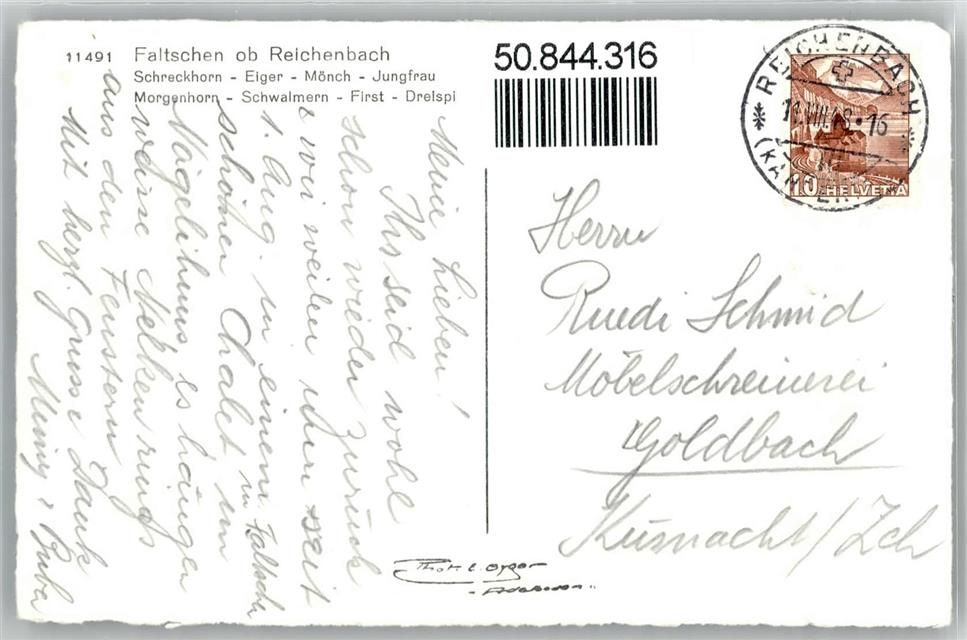 11491 Faltschen ob Reichenbach
Schreckhorn - Eiger - Mönch - Jungfrau
Morgenhorn - Schwalmern - First - Dreispi
50.844.316
REICHENBACH
11.VIII.48.16
10 HELVETIA
Meine Lieben!
Ihr seid wohl
schon wieder zurück
& wir weilen hier seit
1. Aug. in einem
schönen Chalet in Faltschen
im
Nägelihuus, es hängen
weisse Nelken rings
aus den Fenstern
Mit herzl. Grusse & Dank
Herrn
Ruedi Schmid
Möbelschreinerei
Goldbach
Küsnacht/Zch
Phot. E. Gyger
Adelboden